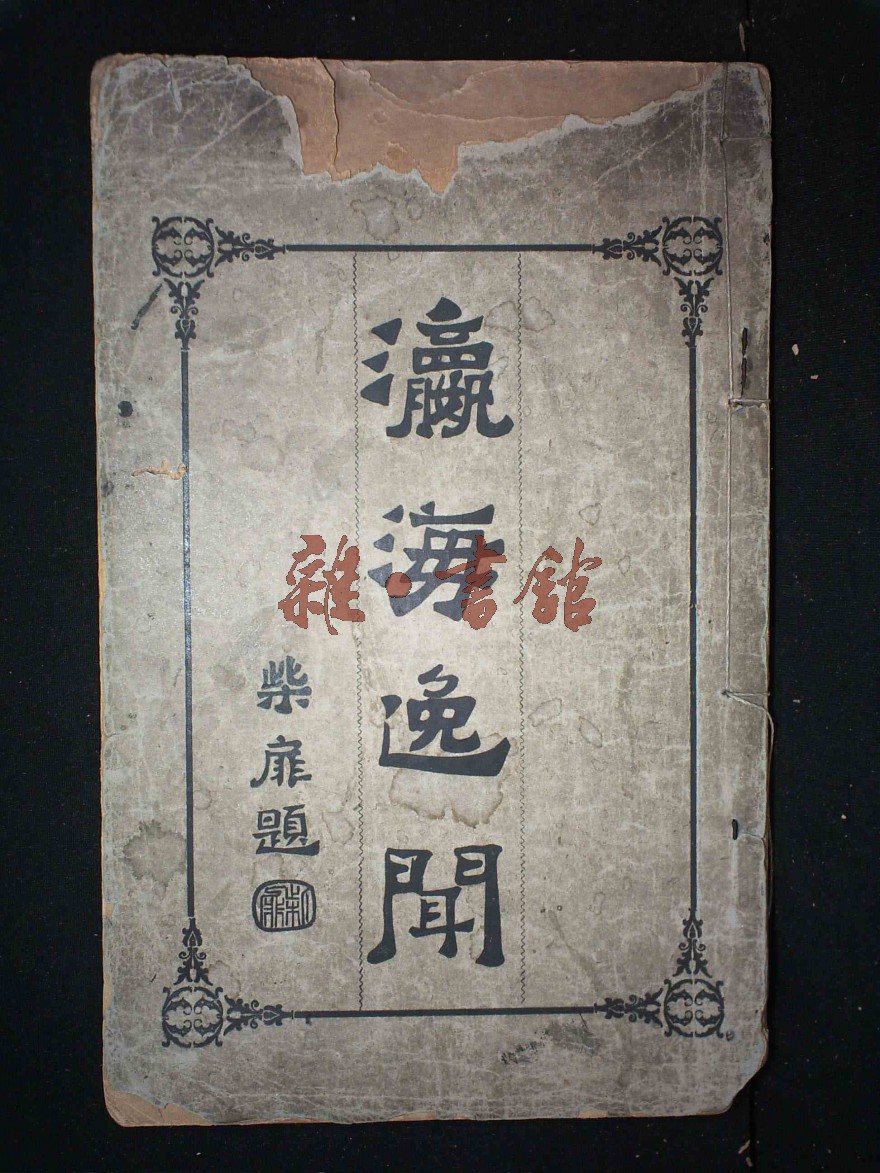 瀛海逸聞
柴扉題
雜·書館